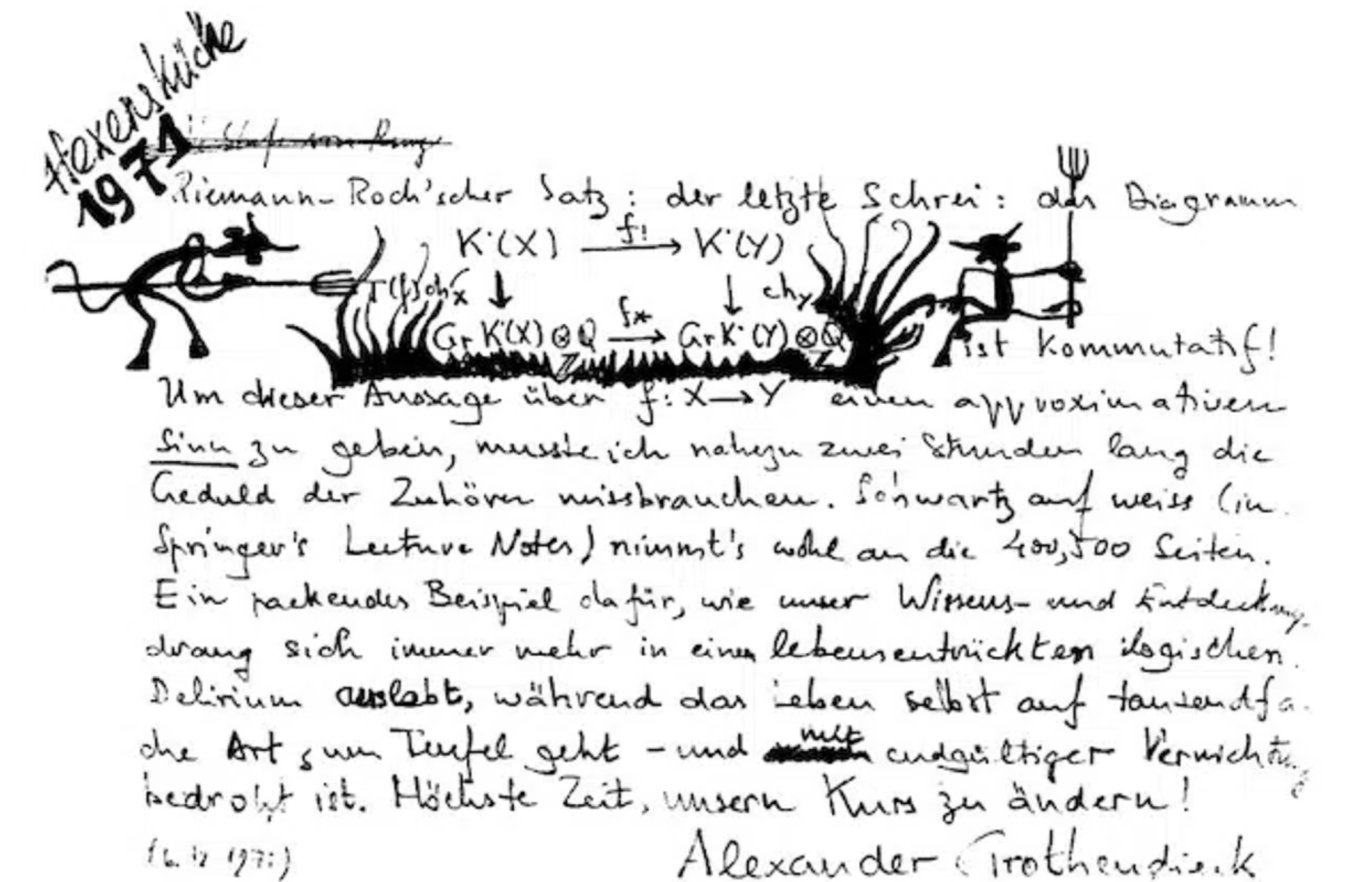 Hexenküche
1971
Riemann-Roch'scher Satz: der letzte Schrei: das Diagramm
K˙(X) f! → K˙(Y)
↓ ↓ ch_Y
Gr K˙(X) ⊗_Z Q f* → Gr K˙(Y) ⊗_Z Q
ist kommutatif!
Um dieser Aussage über f: X → Y einen approximativen
Sinn zu geben, musste ich nahezu zwei Stunden lang die
Geduld der Zuhörer missbrauchen. Schwartz auf weiss (in
Springer's Lecture Notes) nimmt's wohl an die 400, 500 Seiten.
Ein packendes Beispiel dafür, wie unser Wissens- und Entdeckungs-
drang sich immer mehr in einem lebensentrückten logischen
Delirium auslebt, während das Leben selbst auf tausendfa-
che Art zum Teufel geht - und mit endgültiger Vernichtung
bedroht ist. Höchste Zeit, unsern Kurs zu ändern!
Alexander Grothendieck